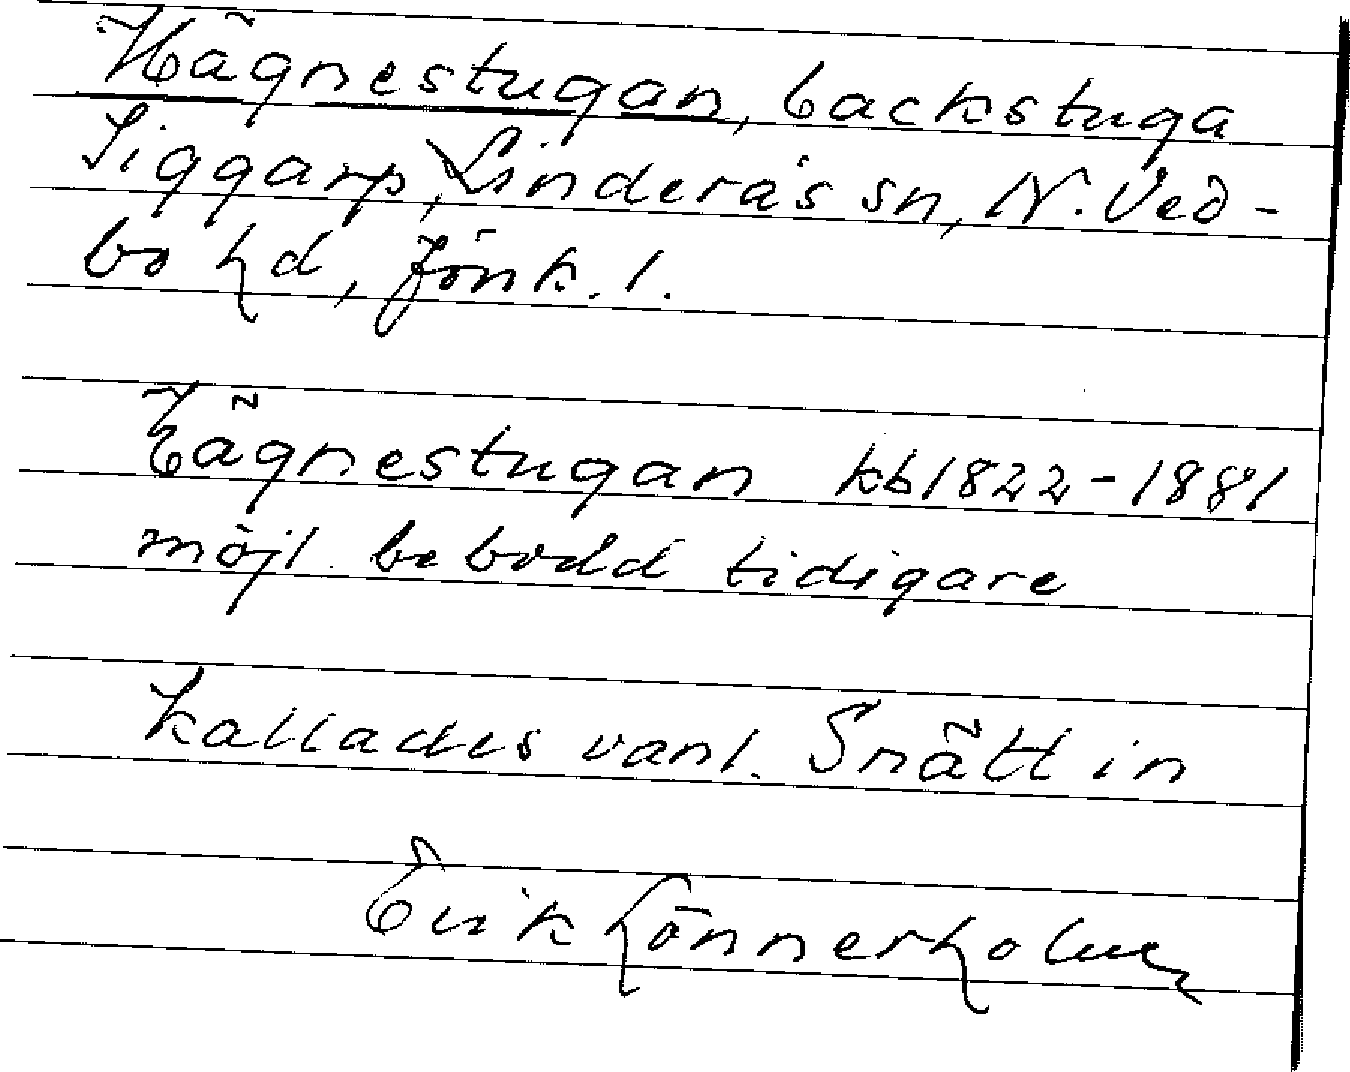 Hägnestugan, backstuga
Siggarp, Linderås sn, N. Ved-
bo hd, Jönk. l.
Hägnestugan kb 1822-1881
möjl. bebodd tidigare
Kallades vanl. Snätt in
Erik Lönnerholm